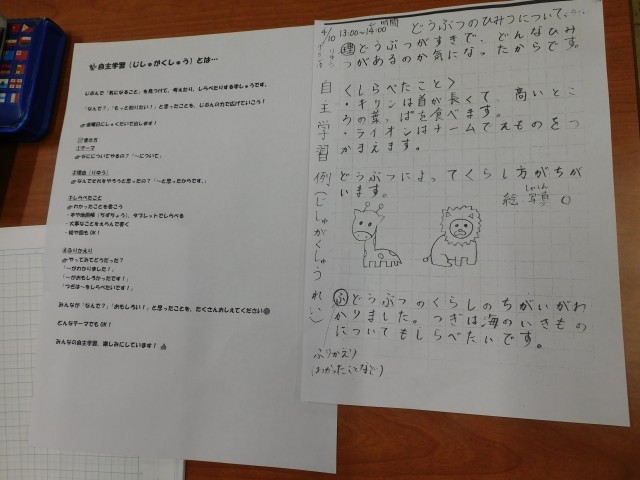 自主学習（じしゅがくしゅう）とは…
じぶんで「気になること」を見つけて、考えたり、しらべたりする学しゅうです。
「なんで？」「もっと知りたい！」と思ったことを、じぶんの力で広げていこう！
金曜日にしゅくだいで出します！
書き方
①テーマ
なにについてやるの？「〜について」
②理由（りゆう）
なんでそれをやろうと思ったの？「〜と思ったからです。」
③しらべたこと
わかったことを書こう
・本や地図帳（ちずちょう）、タブレットでしらべる
・大事なことをえらんで書く
・絵や図もOK！
④ふりかえり
やってみてどうだった？
「〜がわかりました！」
「〜がおもしろかったです！」
「つぎは〜をしらべたいです！」
みんなが「なんで？」「おもしろい！」と思ったことを、たくさんおしえてください
どんなテーマでもOK！
みんなの自主学習、楽しみにしています！
4/10 13:00〜14:00 時間
どうぶつのひみつについて。
りゆう
理 どうぶつがすきで、どんなひみ
つがあるのか気になったからです。
自主学習例（じしゅがくしゅうれい）
くしらべたこと＞
・キリンは首が長くて、高いとこ
ろの葉っぱを食べます。
・ライオンはチームでえものをつ
かまえます。
どうぶつによってくらし方がちが
います。
絵 写真
しゃしん
ふ どうぶつのくらしのちがいがわ
かりました。つぎは海のいきもの
についてもしらべたいです。
ふりかえり
(わかったことなど)